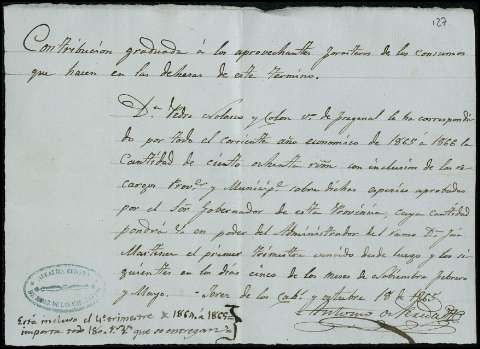 127
Contribucion graduada á los aprovechantes forasteros de los consumos
que hacen en las dehesas de este término.
Dn Pedro Nolasco y Colon vno de Fregenal le ha correspondi
do por todo el corriente año economico de 1865 á 1866 la
Cantidad de ciento ochenta rvon con inclusion de los re
cargos Provles y Municipls sobre dichas especies aprobados
por el Sor Gobernador de esta Provincia, cuya cantidad
pondrá V. en poder del Administrador del ramo Dn José
Martinez el primer trimestre vencido desde luego y los si
guientes en los dias cinco de los meses de Noviembre febrero
y Mayo. Jerez de los Cabs y octubre 18 de 1865
Antonio
Está inclusa el 4º trimestre de 1864 á 1865
importa todo 180 que se entregan